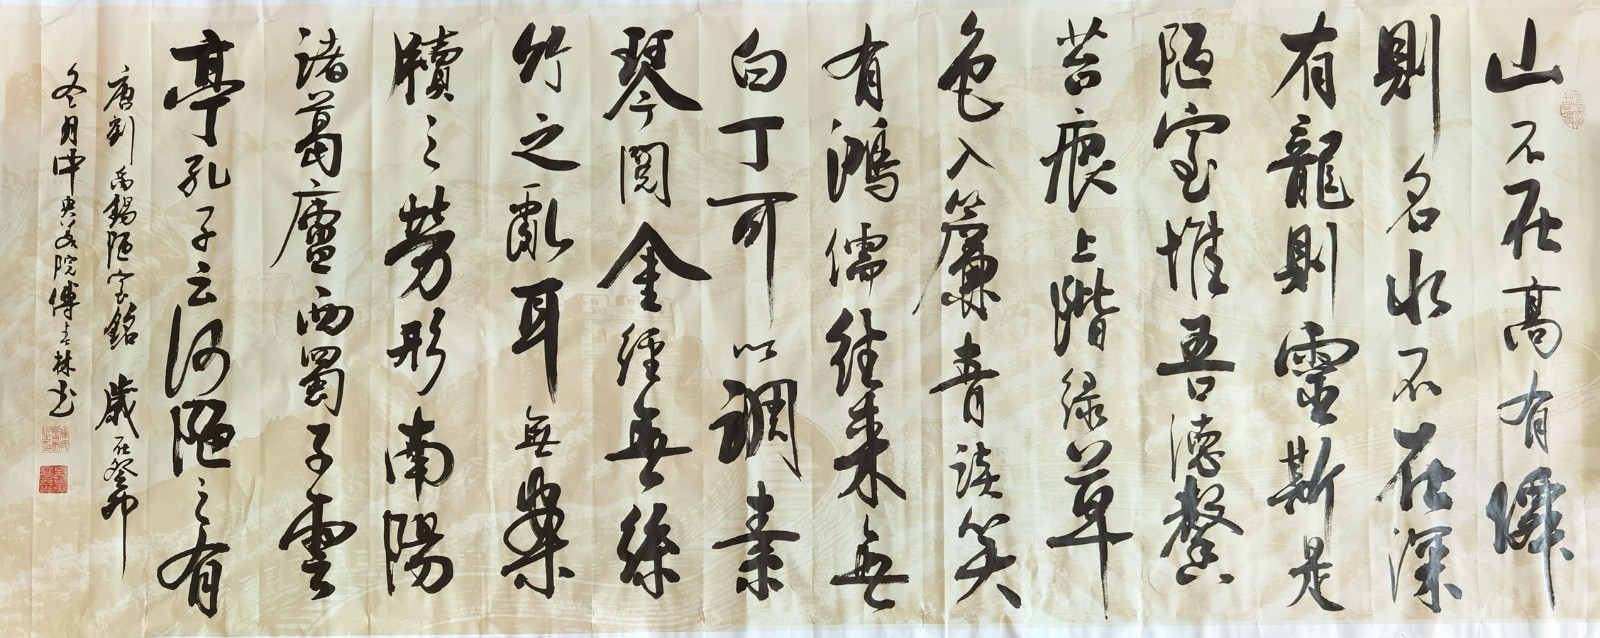 山不在高有僊
則名水不在深
有龍則靈斯是
陋室惟吾德馨
苔痕上階綠草
色入簾青談笑
有鴻儒往來無
白丁可以調素
琴閱金經無絲
竹之亂耳無案
牘之勞形南陽
諸葛廬西蜀子雲
亭孔子云何陋之有
唐劉禹錫陋室銘 歲在癸卯
冬月中央美院傅林书